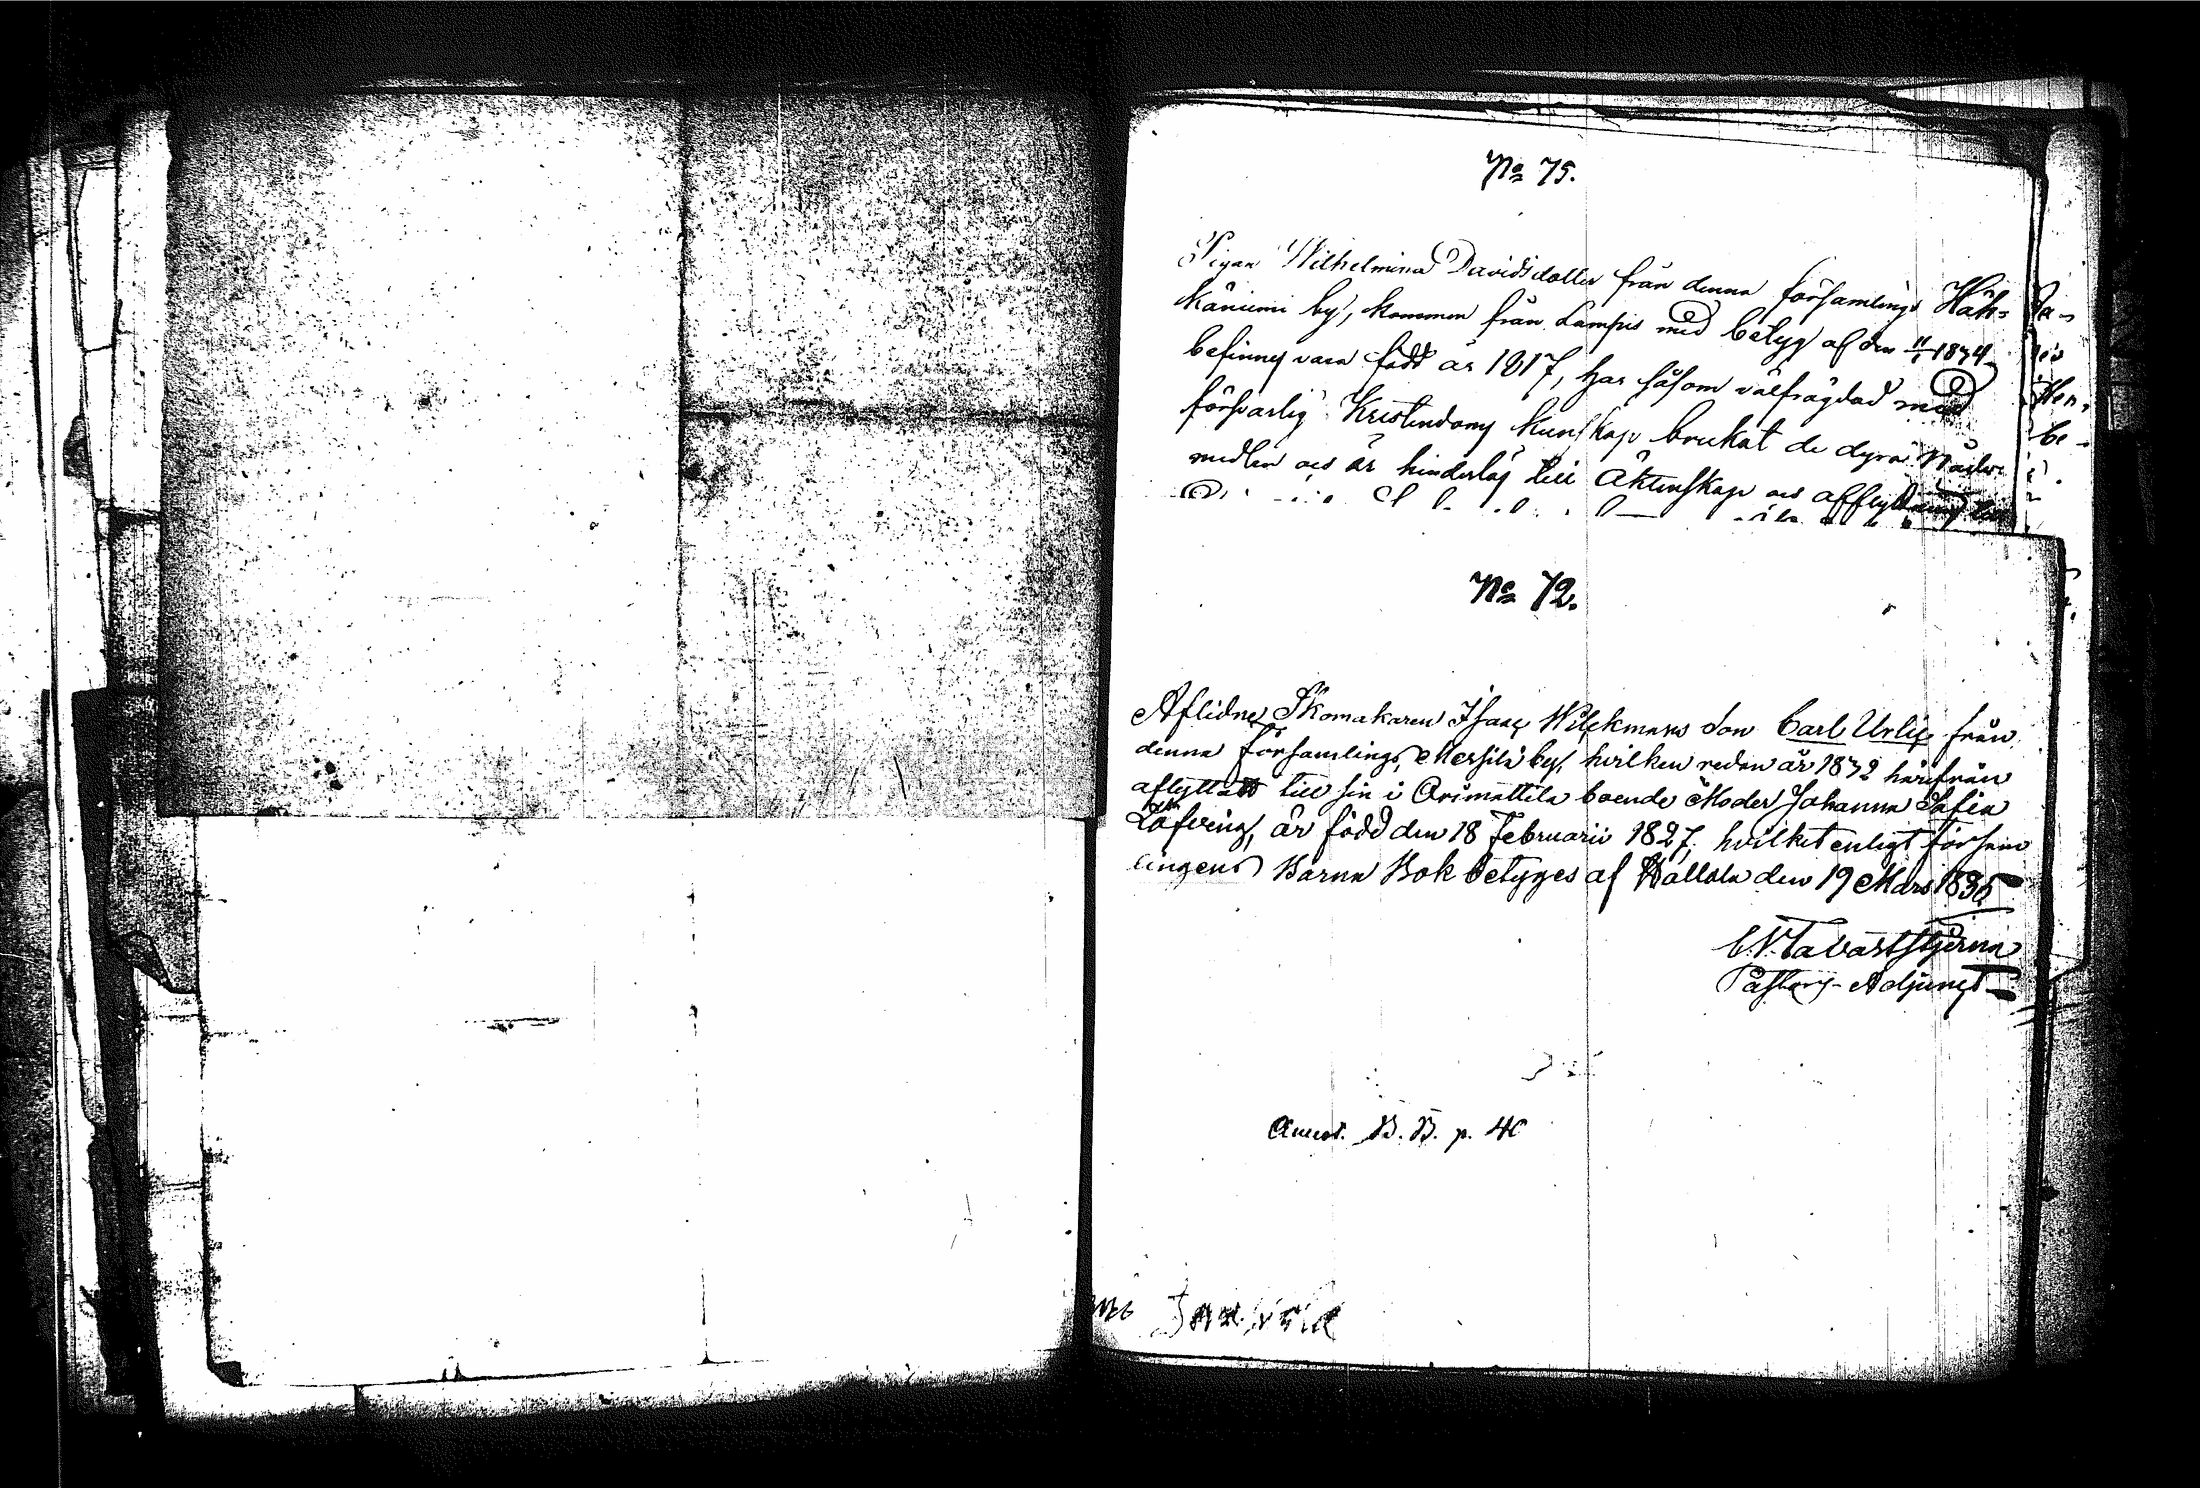 No 75.
Pigan Wilhelmina Davidsdotter från denna församlings Häh-
käniemi by, kommen från Lampis med betyg af den 11/1 1834
befinnes vara född år 1817, har såsom välfrägdad med
försvarlig Kristendoms kunskap brukat de dyra Nåde
medlen och är hinderlös till Äktenskap och afflyttning
No 72.
Aflidne Skomakaren Isaac Wilckmans Son Carl Ulric från
denna församlings, Mersilä by, hvilken redan år 1832 härifrån
aflyttatt till sin i Orimattila boende Moder Johanna Sofia
är född den 18 Februarii 1827, hvilket enligt Försam
lingens Barna Bok betyges af Hollola den 19 Mars 1835
C. N. Tavaststjerna
Pastors-Adjunct
B. B. p. 40